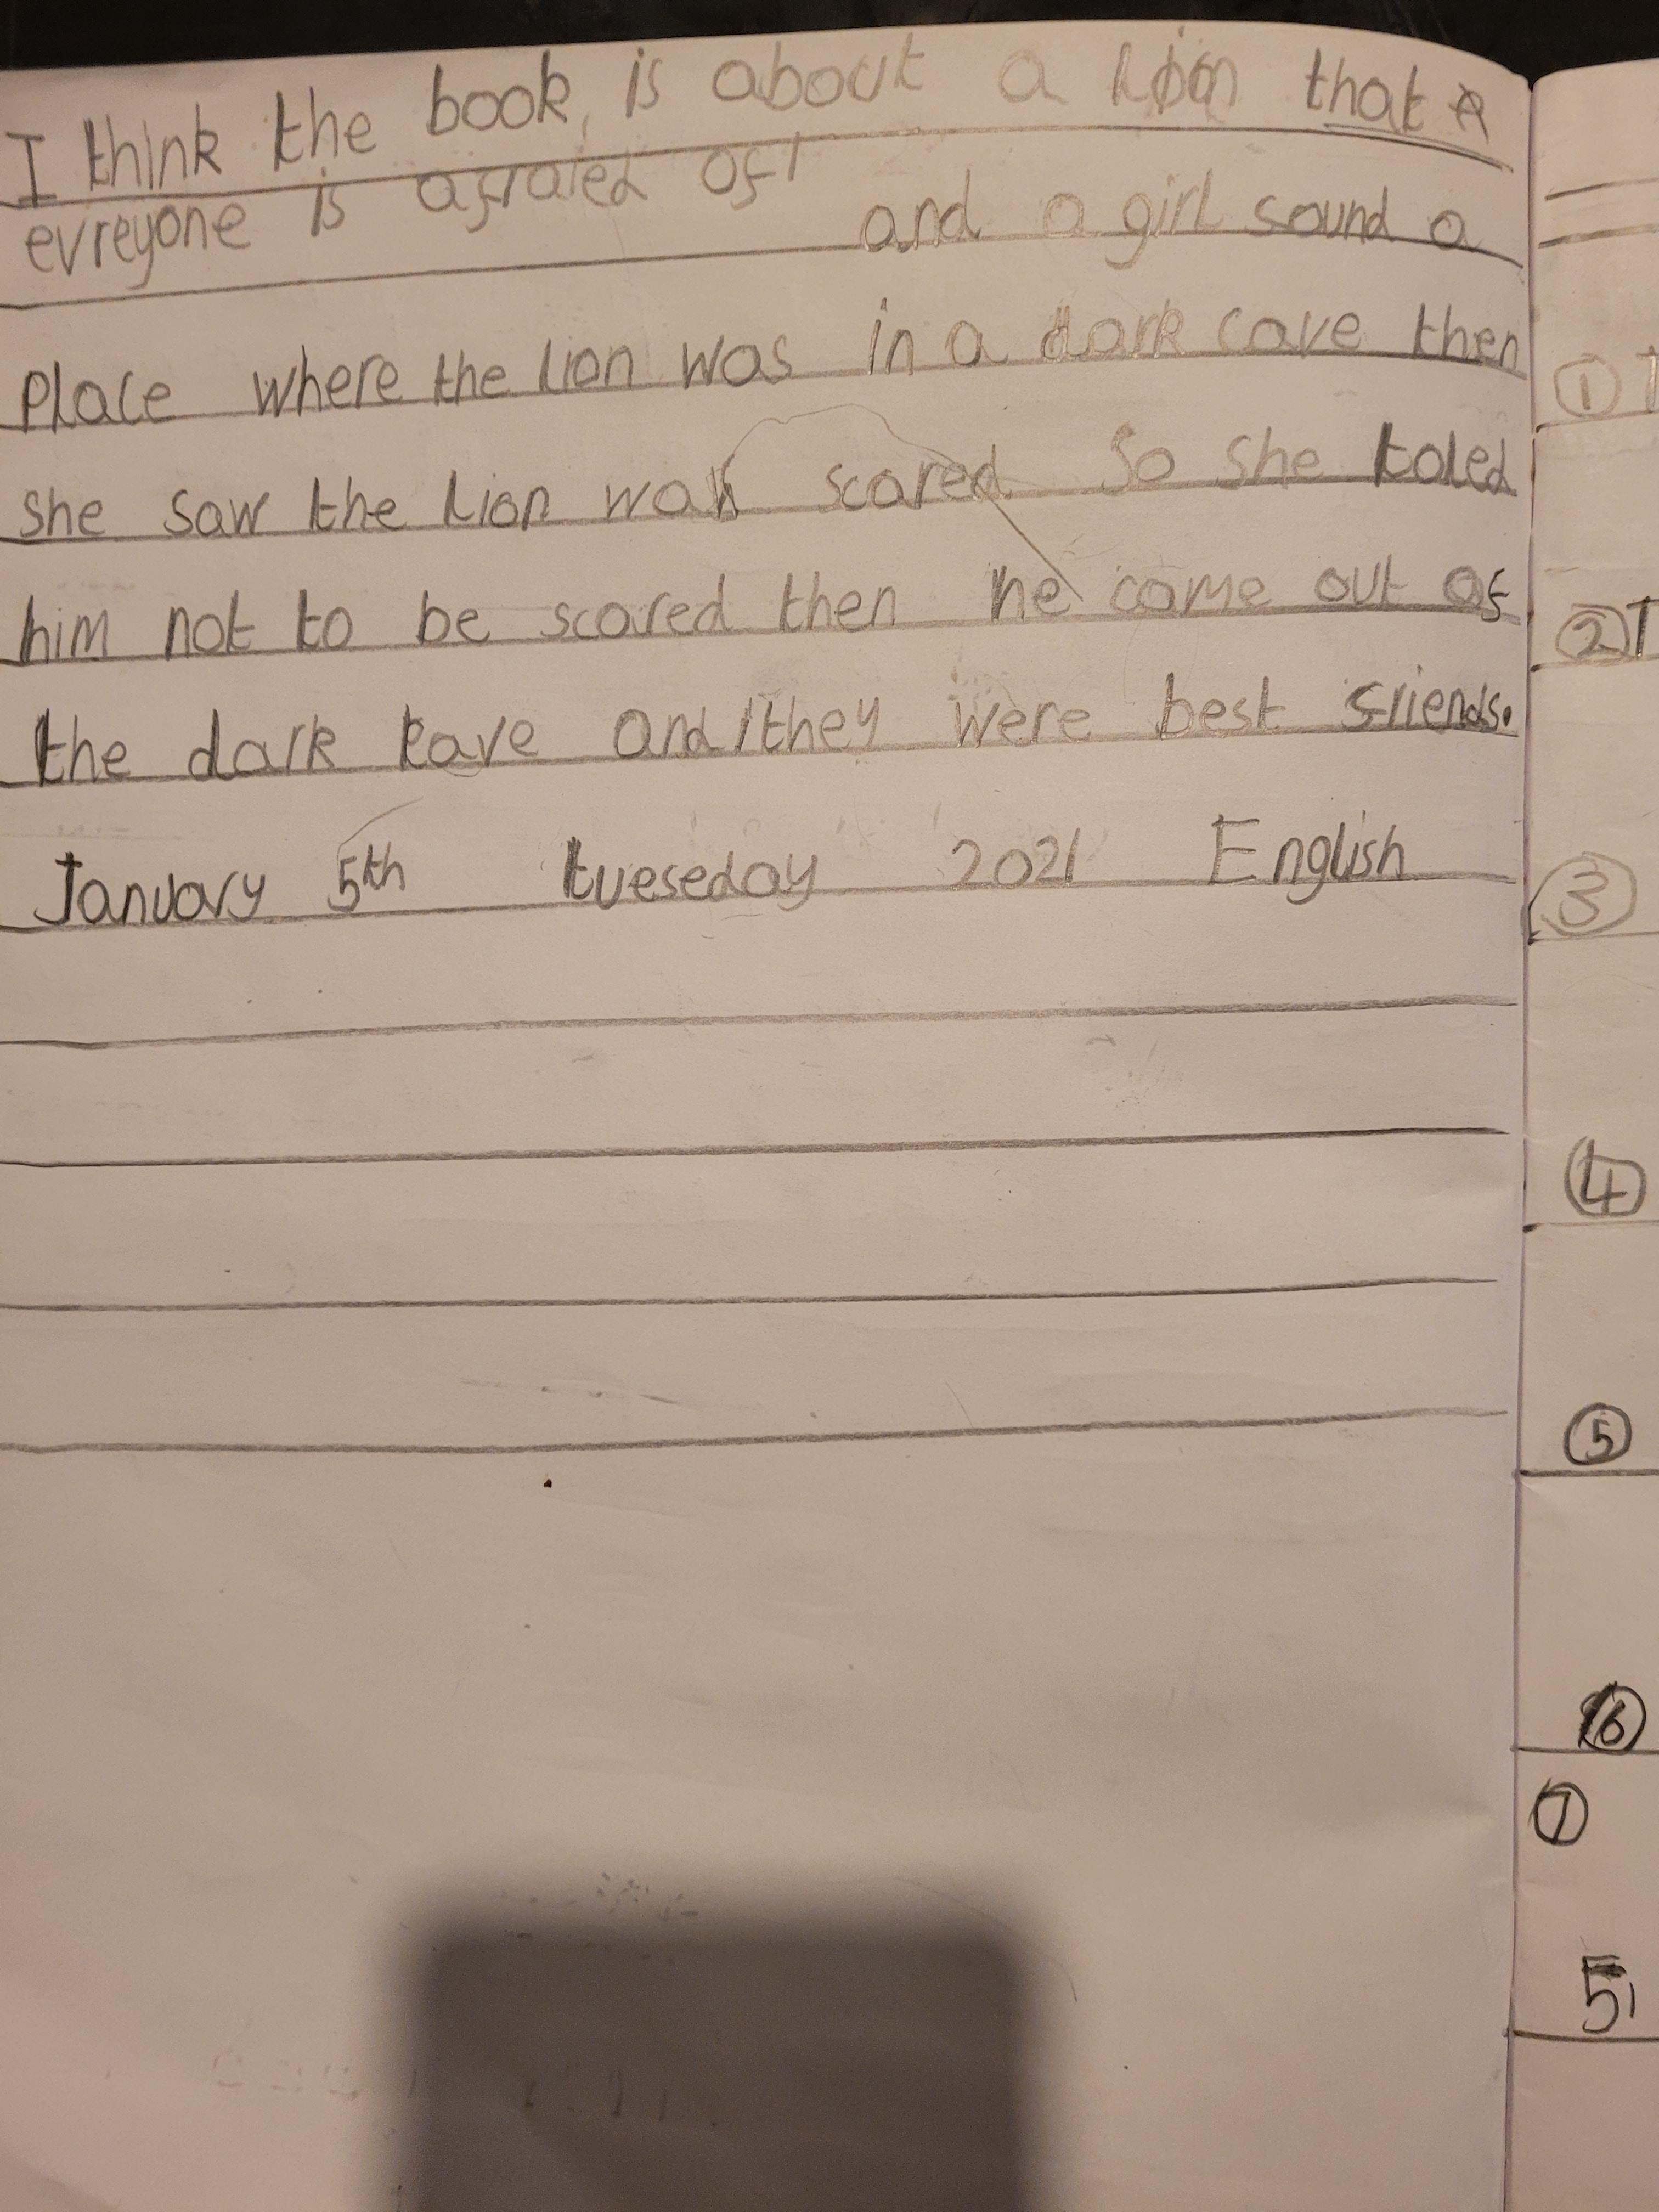 I think the book, is about a lion that
evreyone is afraied of
and a girl found a
Place where the lion was in a dark cave then
she saw the lion was scared. So she toled
him not to be scared then he came out of
the dark cave and they were best friends.
January 5th tueseday 2021 English
① T
② T
③
④
⑤
⑥
⑦
5